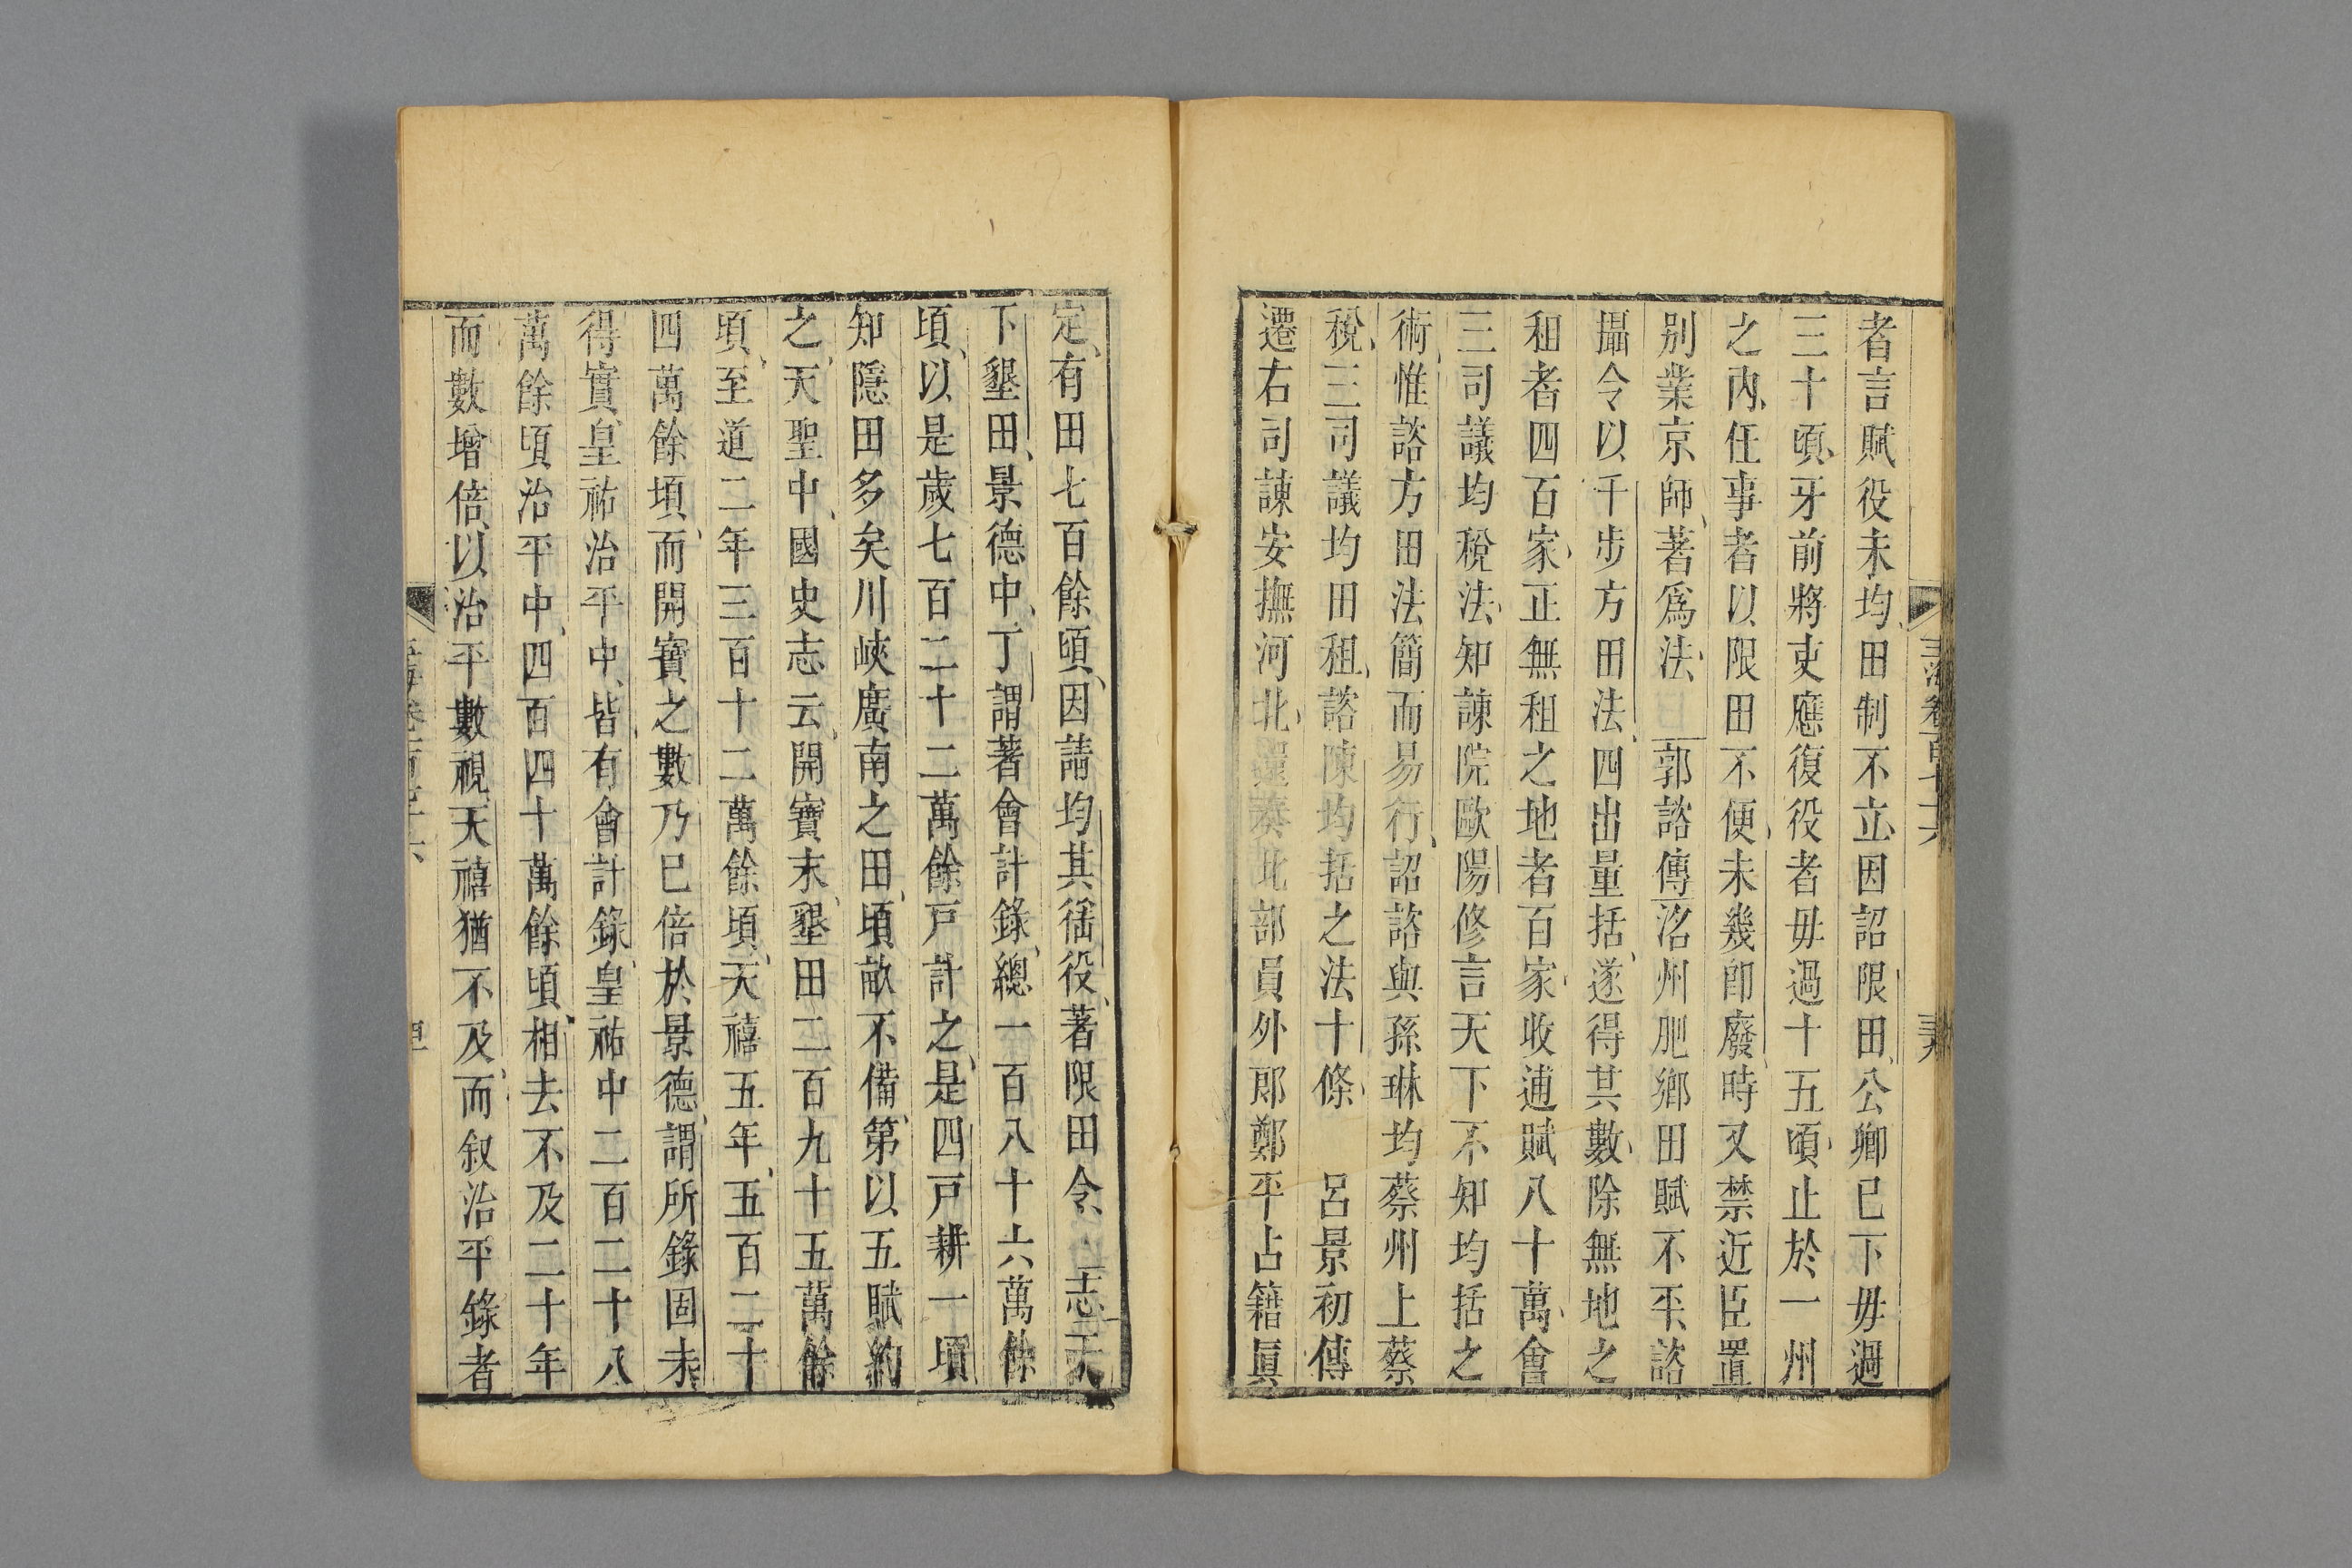 者言賦役未均田制不立因詔限田公卿已下毋過
三十頃牙前將吏應復役者毋過十五頃止於一州
之內任事者以限田不便未幾卽廢時又禁近臣置
別業京師著爲法 郭諮傳洺州肥鄉田賦不平諮
攝令以千步方田法四出量括遂得其數除無地之
租者四百家正無租之地者百家收逋賦八十萬會
三司議均稅法知諫院歐陽修言天下不知均括之
術惟諮方田法簡而易行詔諮與孫琳均蔡州上蔡
稅三司議均田租諮陳均括之法十條 呂景初傳
遷右司諫安撫河北還奏比部員外郎鄭平占籍眞
定有田七百餘頃因請均其徭役著限田令 志天
下墾田景德中丁謂著會計錄總一百八十六萬餘
頃以是歲七百二十二萬餘戸計之是四戸耕一頃
知隱田多矣川峽廣南之田頃畝不備第以五賦約
之天聖中國史志云開寶末墾田二百九十五萬餘
頃至道二年三百十二萬餘頃天禧五年五百二十
四萬餘頃而開寶之數乃已倍於景德謂所錄固未
得實皇祐治平中皆有會計錄皇祐中二百二十八
萬餘頃治平中四百四十萬餘頃相去不及二十年
而數增倍以治平數視天禧猶不及而叙治平錄者